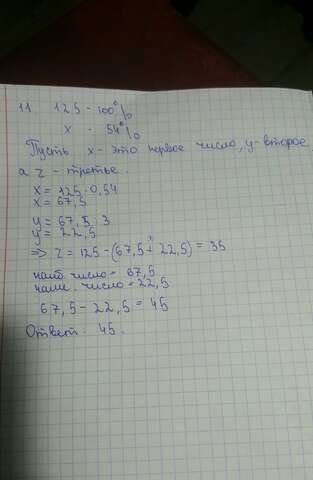 11. 125 - 100%
x - 54%
Пусть x - это первое число, y - второе
а z - третье.
x = 125 · 0,54
x = 67,5
y = 67,5 : 3
y = 22,5
=> z = 125 - (67,5 + 22,5) = 35
наиб. число = 67,5
наим. число = 22,5
67,5 - 22,5 = 45
Ответ: 45.